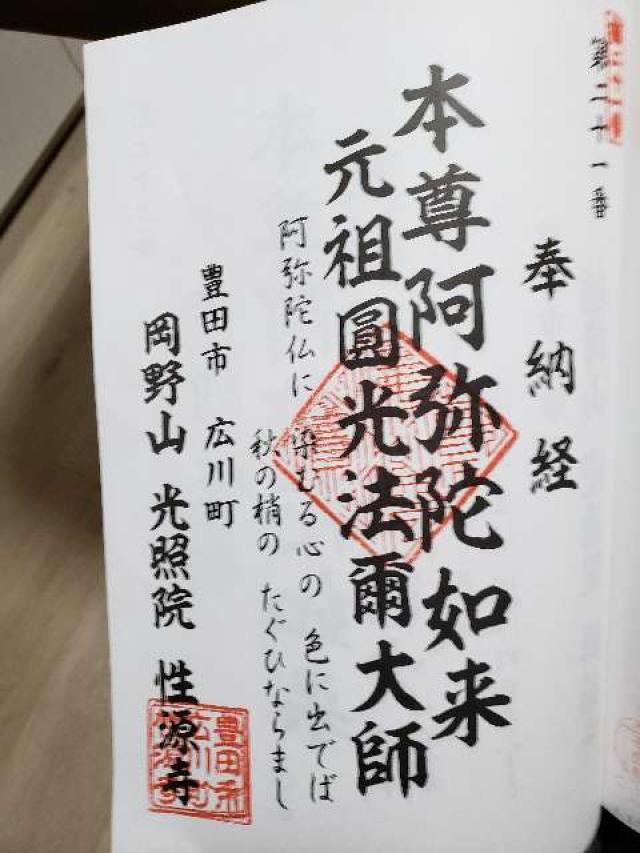 第二十一番
奉納経
本尊阿弥陀如来
元祖圓光法爾大師
阿弥陀仏に 染むる心の 色に出でば
秋の梢の たぐひならまし
豊田市 広川町
岡野山 光照院 性源寺